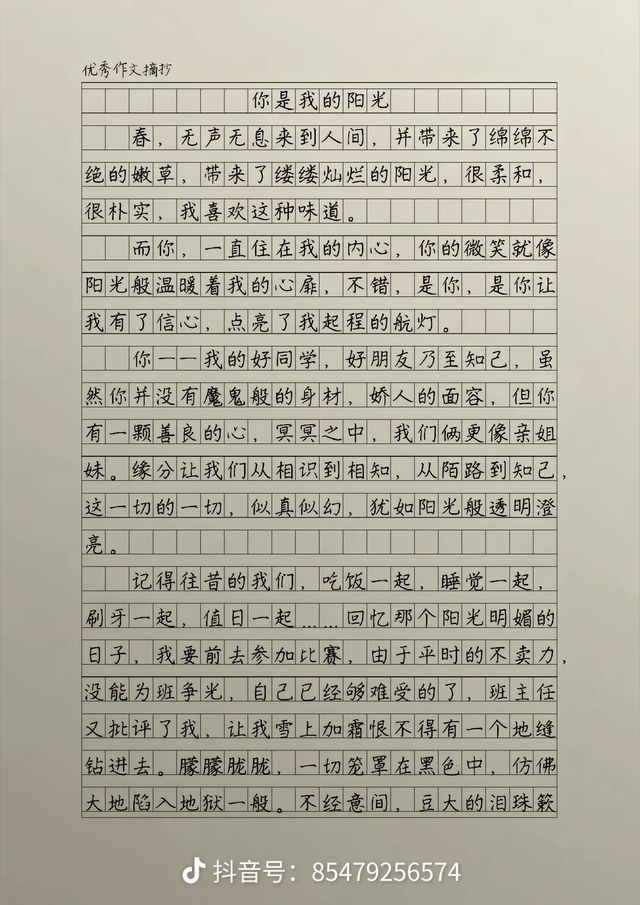 优秀作文摘抄
你是我的阳光
春，无声无息来到人间，并带来了绵绵不
绝的嫩草，带来了缕缕灿烂的阳光，很柔和，
很朴实，我喜欢这种味道。
而你，一直住在我的内心，你的微笑就像
阳光般温暖着我的心扉，不错，是你，是你让
我有了信心，点亮了我起程的航灯。
你一一我的好同学，好朋友乃至知己，虽
然你并没有魔鬼般的身材，娇人的面容，但你
有一颗善良的心，冥冥之中，我们俩更像亲姐
妹。缘分让我们从相识到相知，从陌路到知己，
这一切的一切，似真似幻，犹如阳光般透明澄
亮。
记得往昔的我们，吃饭一起，睡觉一起，
刷牙一起，值日一起……回忆那个阳光明媚的
日子，我要前去参加比赛，由于平时的不卖力，
没能为班争光，自己已经够难受的了，班主任
又批评了我，让我雪上加霜恨不得有一个地缝
钻进去。朦朦胧胧，一切笼罩在黑色中，仿佛
大地陷入地狱一般。不经意间，豆大的泪珠簌
抖音号：85479256574